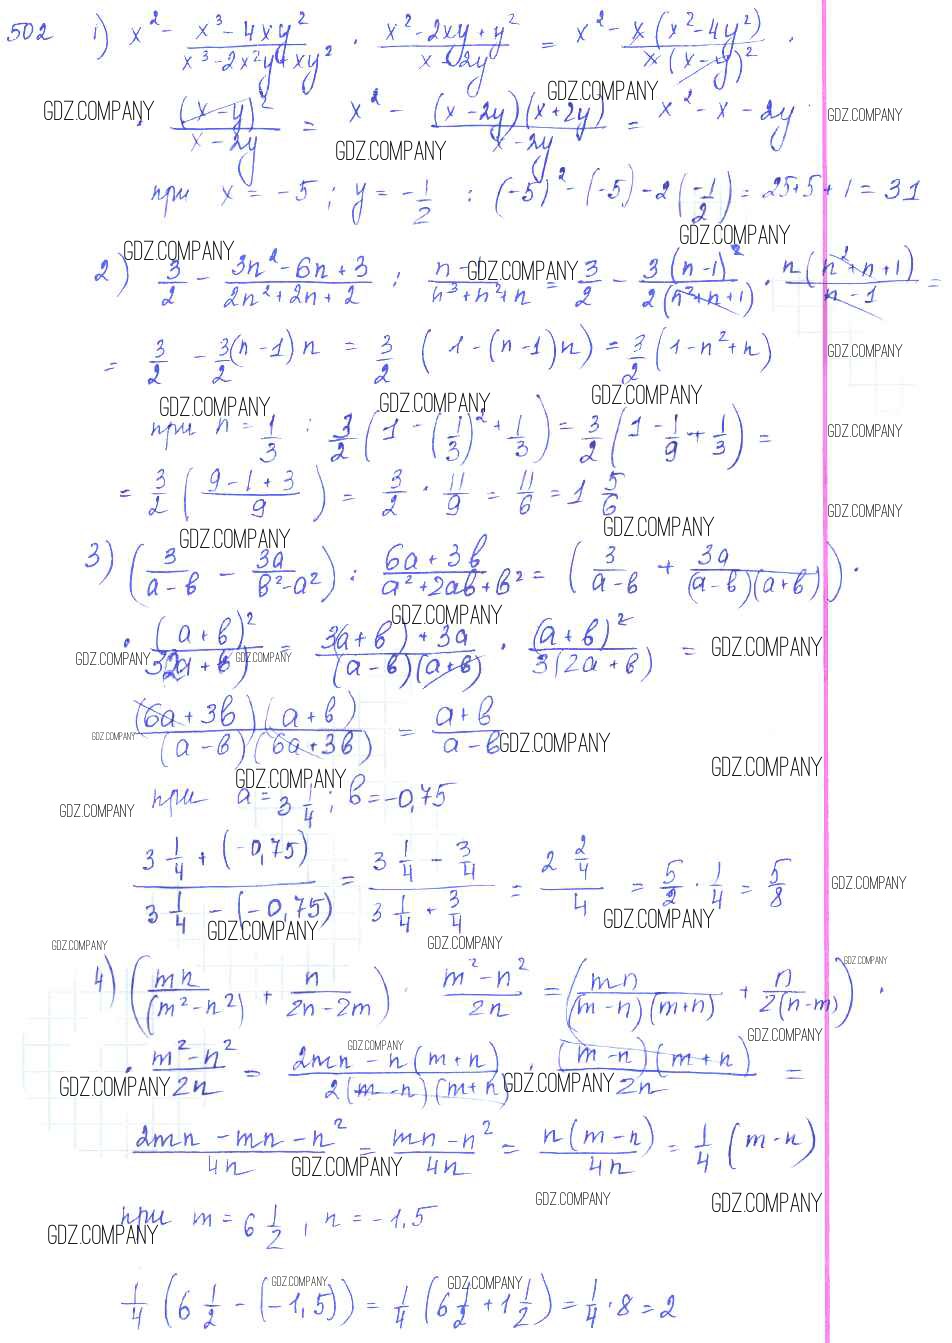 502 1) x² - (x³ - 4xy²)/(x³ - 2x²y + xy²) · (x² - 2xy + y²)/(x - 2y) = x² - x(x² - 4y²)/(x(x - y)²) ·
GDZ.COMPANY GDZ.COMPANY GDZ.COMPANY
· (x - y)²/(x - 2y) = x² - (x - 2y)(x + 2y)/(x - 2y) = x² - x - 2y
GDZ.COMPANY
при x = -5; y = -1/2 : (-5)² - (-5) - 2(-1/2) = 25 + 5 + 1 = 31
GDZ.COMPANY GDZ.COMPANY
2) 3/2 - (3n² - 6n + 3)/(2n² + 2n + 2) : (n - 1)/(n³ + n² + n) = 3/2 - 3(n - 1)²/(2(n² + n + 1)) · n(n² + n + 1)/(n - 1) =
GDZ.COMPANY
= 3/2 - 3/2(n - 1)n = 3/2 (1 - (n - 1)n) = 3/2 (1 - n² + n)
GDZ.COMPANY
GDZ.COMPANY GDZ.COMPANY GDZ.COMPANY
при n = 1/3 : 3/2 (1 - (1/3)² + 1/3) = 3/2 (1 - 1/9 + 1/3) =
GDZ.COMPANY
= 3/2 ((9 - 1 + 3)/9) = 3/2 · 11/9 = 11/6 = 1 5/6
GDZ.COMPANY
GDZ.COMPANY GDZ.COMPANY
3) (3/(a - b) - 3a/(b² - a²)) : (6a + 3b)/(a² + 2ab + b²) = (3/(a - b) + 3a/((a - b)(a + b))) ·
GDZ.COMPANY
· (a + b)²/(3(2a + b)) = (3(a + b) + 3a)/((a - b)(a + b)) · (a + b)²/(3(2a + b)) =
GDZ.COMPANY GDZ.COMPANY GDZ.COMPANY
(6a + 3b)(a + b)/((a - b)(6a + 3b)) = (a + b)/(a - b)
GDZ.COMPANY GDZ.COMPANY
GDZ.COMPANY GDZ.COMPANY
при a = 3 1/4; b = -0,75
GDZ.COMPANY
(3 1/4 + (-0,75))/(3 1/4 - (-0,75)) = (3 1/4 - 3/4)/(3 1/4 + 3/4) = (2 2/4)/4 = 5/2 · 1/4 = 5/8
GDZ.COMPANY
GDZ.COMPANY GDZ.COMPANY
GDZ.COMPANY GDZ.COMPANY GDZ.COMPANY
4) (mn/(m² - n²) + n/(2n - 2m)) · (m² - n²)/2n = (mn/((m - n)(m + n)) + n/(2(n - m))) ·
GDZ.COMPANY GDZ.COMPANY
· (m² - n²)/2n = (2mn - n(m + n))/(2(m - n)(m + n)) · (m - n)(m + n)/2n =
GDZ.COMPANY GDZ.COMPANY
(2mn - mn - n²)/4n = (mn - n²)/4n = n(m - n)/4n = 1/4 (m - n)
GDZ.COMPANY
GDZ.COMPANY GDZ.COMPANY
при m = 6 1/2, n = -1,5
GDZ.COMPANY
GDZ.COMPANY GDZ.COMPANY
1/4 (6 1/2 - (-1,5)) = 1/4 (6 1/2 + 1 1/2) = 1/4 · 8 = 2